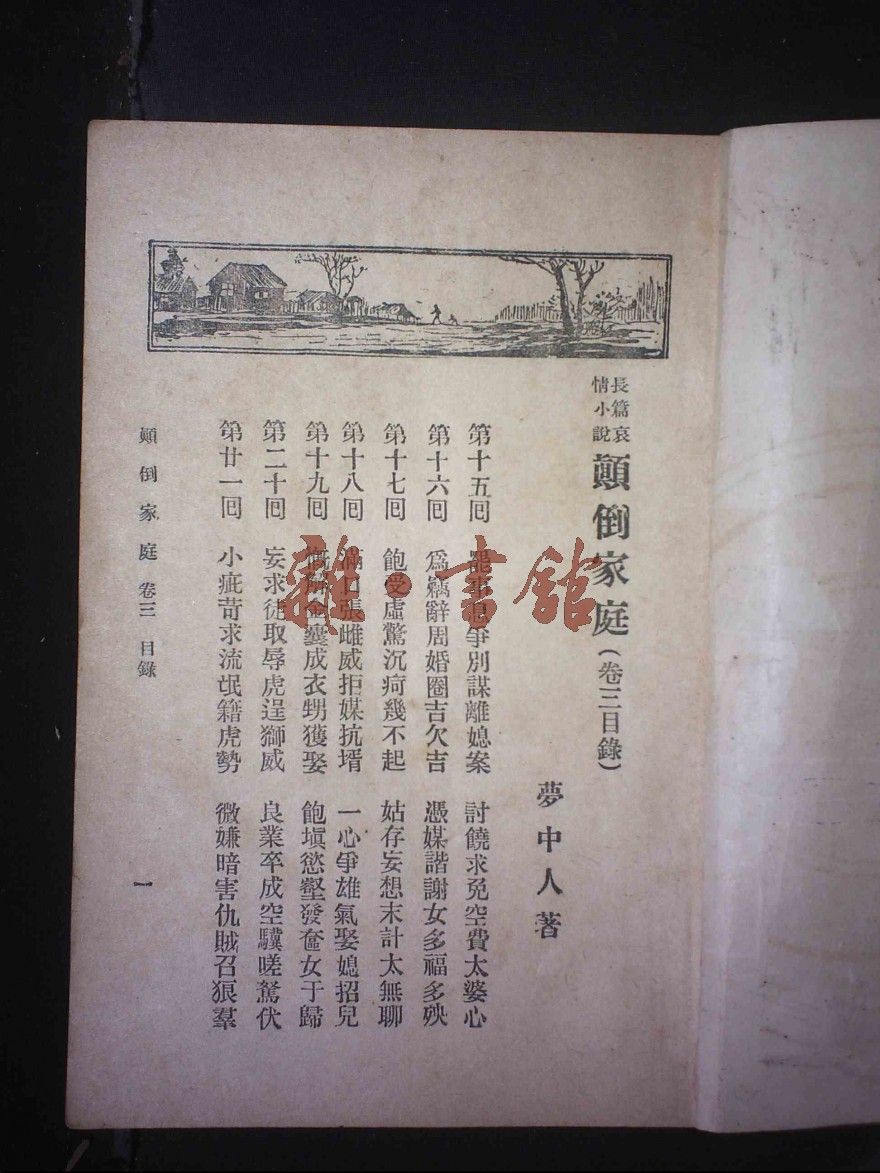 長篇哀情小說
顚倒家庭（卷三目錄）
夢中人著
第十五回　罷事息爭別謀離媳案　討饒求免空費太婆心
第十六回　爲竊辭周婚圈吉欠吉　憑媒諧謝女多福多殃
第十七回　飽受虛驚沉疴幾不起　姑存妄想末計太無聊
第十八回　滿口張雌威拒媒抗壻　一心爭雄氣娶媳招兒
第十九回　慨解金囊成衣甥獲娶　飽塡慾壑發奩女于歸
第二十回　妄求徒取辱虎逞獅威　良業卒成空驥嗟駑伏
第廿一回　小疵苛求流氓籍虎勢　微嫌暗害仇賊召狼羣
顚倒家庭　卷三　目錄
一
雜·書館